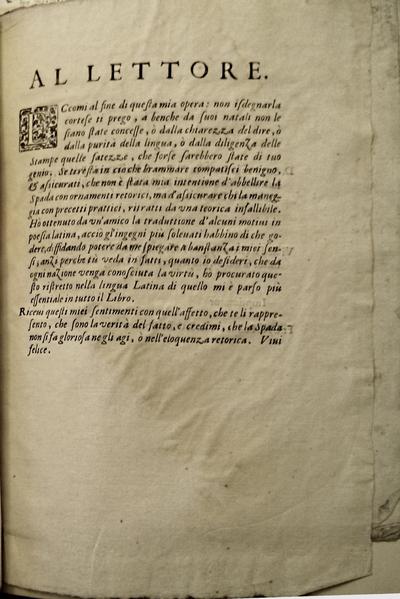 AL LETTORE.
ECcomi al fine di questa mia opera: non isdegnarla
cortese ti prego, a benche da suoi natali non le
siano state concesse, ò dalla chiarezza del dire, ò
dalla purità della lingua, ò dalla diligenza delle
Stampe quelle fatezze, che forse sarebbero state di tuo
genio. Se tu resta in ciò che brammare compatisci benigno,
& assicurati, che non è stata mia intentione d'abbellire la
Spada con ornamenti retorici, ma d'assicurare chi la maneg-
gia con precetti prattici, ritratti da vna teorica infallibile.
Hò ottenuto da vn'amico la traduttione d'alcuni motini in
poesia latina, acciò gl'ingegni più soleuati habbino di che go-
dere, disfidando potere da me spiegare a bastanza i miei sen-
si, anzi perche tù veda in fatti, quanto io desideri, che da
ogni nazione venga conosciuta la virtù, hò procurato que-
sto ristretto nella lingua Latina di quello mi è parso più
essentiale in tutto il Libro.
Riceui questi miei sentimenti con quell'affetto, che te li rappre-
sento, che sono la verità del fatto, e credimi, che la Spada
non si fa gloriosa negli agi, ò nell'eloquenza retorica. Viui
felice.